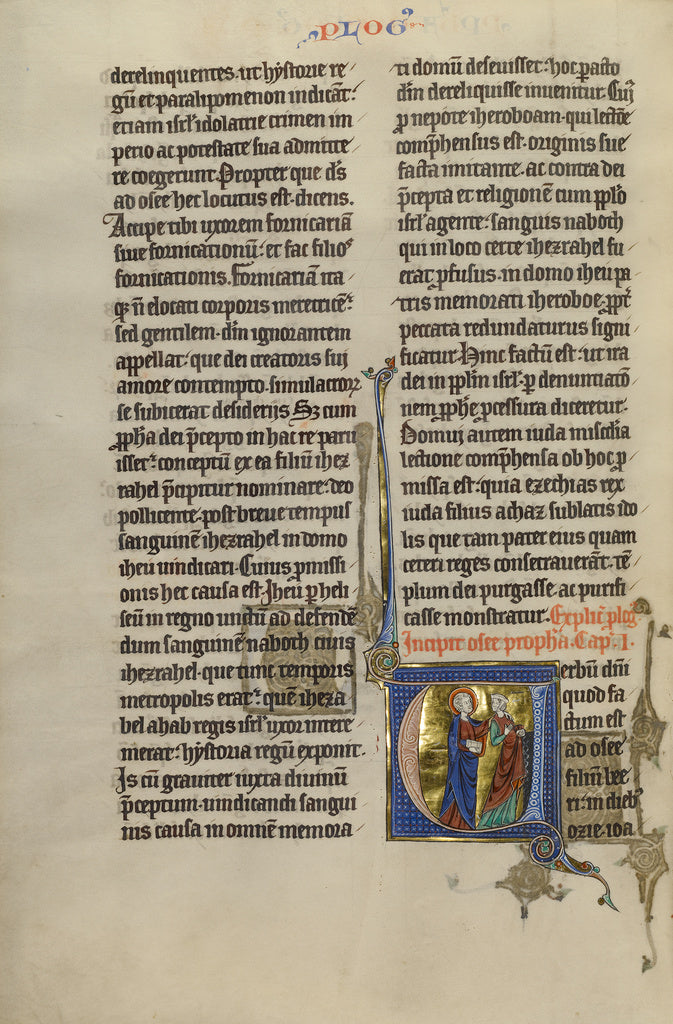 PLOG
derelinquentes. ut hystorie re
gū et paralipomenon indicāt.
etiam isrl' idolatrie crimen im
perio ac potestate sua admitte
re coegerunt. Propter que dn̄s
ad osee hec locutus est. dicens.
Accipe tibi uxorem fornicariā
siue fornicationū. et fac filios
fornicationis. Fornicariā ita
q; n̄ elocati corporis meretricē.
sed gentilem. dn̄m ignorantem
appellat. que dei creatoris sui
amore contempto. simulacror
se subicerat desiderijs. Sz cum
ppha dei p̄cepto in hac re paru
isset. conceptū ex ea filiū ihez
rahel p̄cipitur nominare. deo
pollicente. post breue tempus
sanguinē ihezrahel in domo
iheu uindicari. Cuius p̄missi
onis hec causa est. Iheu p heli
seū in regno unctū ad defendē
dum sanguinē naboth ciuis
ihezrahel. que tunc temporis
metropolis erat. quē iheza
bel ahab regis isrl' uxor intere
merat. hystoria regū exponit.
Is cū grauiter iuxta diuinū
p̄ceptum. uindicandi sangui
nis causa in omnē memora
ti domū deseuisset. hoc pacto
dn̄m dereliquisse inuenitur. Cui
p nepote iheroboam. qui lectōe
comphensus est. originis sue
facta imitante. ac contra dei
p̄cepta et religionē cum pplo
isrl' agente. sanguis naboth
qui in loco certe ihezrahel fu
erat pfusus. in domo iheu pa
tris memorati iheroboe. ppt
peccata redundaturus signi
ficatur. Hinc factū est. ut ira
dei in pplm isrl'. p denunciatō
nem pphe pcessura diceretur.
Domui autem iuda misc̄dia
lectione comphensa ob hoc p
missa est. quia ezechias rex
iuda filius achaz sublatis ido
lis que tam pater eius quam
ceteri reges consecrauerāt. tē
plum dei purgasse. ac purifi
casse monstratur. Explic̄ plog
Incipit osee propha. Cap. I.
erbū dn̄i
quod fa
ctum est
ad osee
filiū bee
ri. in dieb;
ozie. ioa